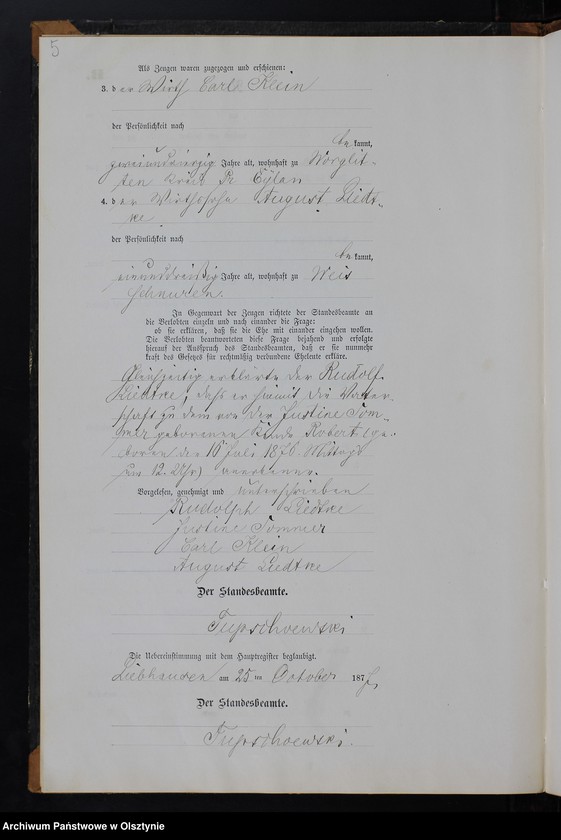 5
Als Zeugen waren zugezogen und erschienen:
3. der Wirth Carl Klein
der Persönlichkeit nach
bekannt,
zweiundvierzig Jahre alt, wohnhaft zu Worglit-
ten Kreis Pr Eylau
4. der Wirthssohn August Liedt-
ke
der Persönlichkeit nach
bekannt,
einunddreißig Jahre alt, wohnhaft zu Weis
schnuren.
In Gegenwart der Zeugen richtete der Standesbeamte an
die Verlobten einzeln und nach einander die Frage:
ob sie erklären, daß sie die Ehe mit einander eingehen wollen.
Die Verlobten beantworteten diese Frage bejahend und erfolgte
hierauf der Ausspruch des Standesbeamten, daß er sie nunmehr
kraft des Gesetzes für rechtmäßig verbundene Eheleute erkläre.
Gleichzeitig erklärte der Rudolf
Liedtke, daß er hiermit die Vater-
schaft zu dem von der Justine Som-
mer geborenen Kinde Robert (ge-
boren den 16 Juli 1876 Mittags
um 12 Uhr) anerkenne.
Vorgelesen, genehmigt und unterschrieben
Rudolph Liedtke
Justine Sommer
Carl Klein
August Liedtke
Der Standesbeamte.
Tupschoewski
Die Uebereinstimmung mit dem Hauptregister beglaubigt.
Liebhausen am 25 ten October 187
Der Standesbeamte.
Tupschoewski.
Archiwum Państwowe w Olsztynie